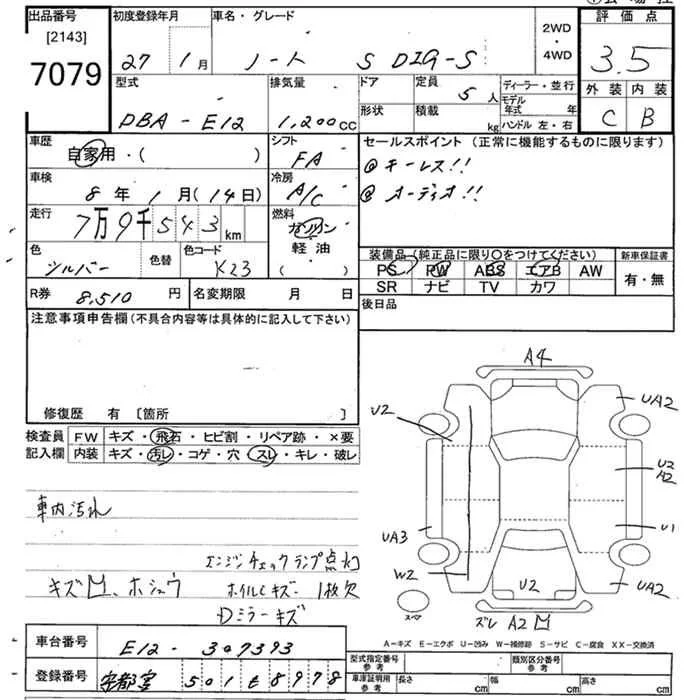 出品番号 初度登録年月 車名・グレード 2WD ・ 4WD 評価点
[2143]
7079 27 1月 ノート S DIG-S 3.5
型式 排気量 ドア 定員 5人 ディーラー・並行 外装 内装
DBA-E12 1,200cc 形状 積載 kg モデル年式 年 ハンドル 左・右 C B
車歴 シフト セールスポイント (正常に機能するものに限ります)
自家用・( ) FA @ キーレス!!
車検 冷房 @ オーディオ!!
8年 1月(14日) A/C
走行 燃料
7万9千543km ガソリン
軽油
( )
色 色替 色コード 装備品(純正品に限り○をつけてください) 新車保証書
シルバー K23 PS PW ABS エアB AW 有・無
SR ナビ TV カワ
R券 8,510円 名変期限 月 日 後日品
注意事項申告欄(不具合内容等は具体的に記入して下さい)
修復歴 有 [箇所 ]
検査員 FW キズ・飛石・ヒビ割・リペア跡・×要
記入欄 内装 キズ・汚レ・コゲ・穴・スレ・キレ・破レ
車内汚れ
エンジンチェックランプ点灯
キズ凹、ホシュウ ホイルCキズ・1枚欠
Dミラーキズ
A4
U2 UA2
U2
A2
UA3 U1
W2 U2 UA2
スペア ズレ A2凹
A-キズ E-エクボ U-凹み W-補修跡 S-サビ C-腐食 XX-交換済
車台番号 E12-307393
型式指定番号 参考 類別区分番号 参考
登録番号 501 8978
車庫証明用 参考 長さ cm 幅 cm 高さ cm